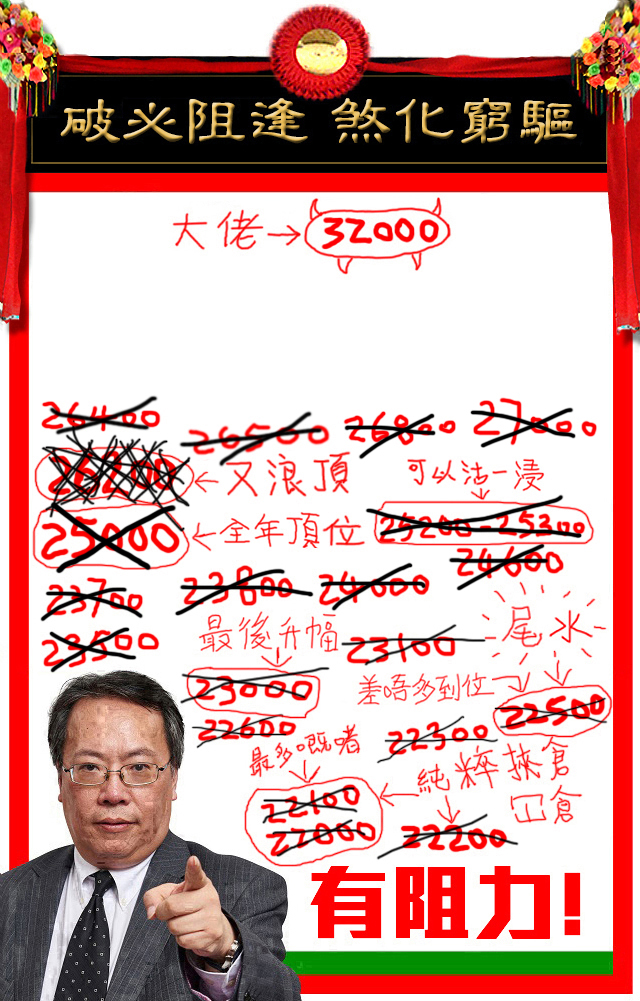 破必阻逢 煞化窮驅
大佬→32000
26400 26500 26800 27000
26200←又浪頂 可以沽一浸
25000←全年頂位 25200-25300
24600
23700 23800 24000
23500 最後升幅 23100 尾水
23000 差唔多到位 22500
22600 22300
最多嘅者 純粹挾倉
22100 冚倉
22000 22200
有阻力!